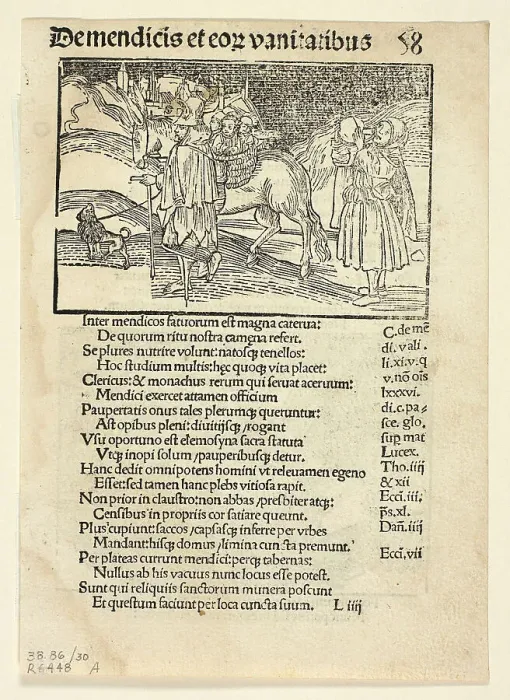 De mendicis et eoꝝ vanitatibus 58
Inter mendicos fatuorum est magna caterua:
De quorum ritu nostra camena refert.
Se plures nutrire volunt: natosqꝫ tenellos:
Hoc studium multis: hec quoqꝫ vita placet:
Clericus: & monachus rerum qui seruat aceruum:
Mendici exercet attamen officium
Paupertatis onus tales plerumqꝫ queruntur:
Ast opibus pleni: diuitijsqꝫ / rogant
Vsu oportuno est elemosyna sacra statuta
Vtqꝫ inopi solum / pauperibusqꝫ detur.
Hanc dedit omnipotens homini vt releuamen egeno
Esset: sed tamen hanc plebs vitiosa rapit.
Non prior in claustro: non abbas / presbiter atqꝫ:
Censibus in propriis cor satiare queunt.
Plus cupiunt: saccos / capsasqꝫ inferre per vrbes
Mandant: hisqꝫ domus / limina cuncta premunt.
Per plateas currunt mendici: perqꝫ tabernas:
Nullus ab his vacuus nunc locus esse potest.
Sunt qui reliquiis sanctorum munera poscunt
Et questum faciunt per loca cuncta suum. L iiij
C. de mē
di. vali.
li. xi. v. q
v. nō oīs
lxxxvi.
di. c. pa⸗
sce. glo.
sup mat
Lucex.
Tho. iiij
& xii
Eccī. iii.
p̄s. xl.
Dan̄. iiij
Eccī. vii
38.86/30
R6448 A